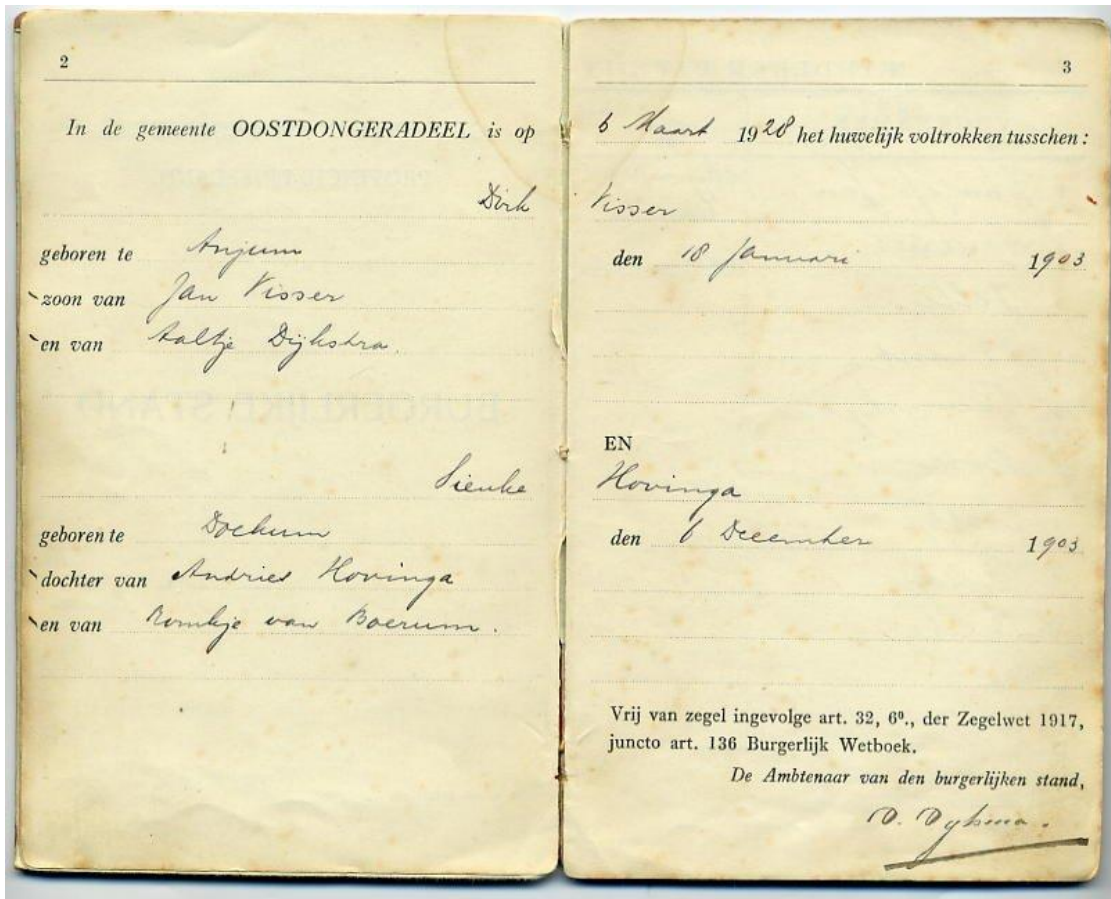 2
In de gemeente OOSTDONGERADEEL is op
Dirk
geboren te Anjum
zoon van Jan Visser
en van Aaltje Dijkstra.
Sienke
geboren te Dockum
dochter van Andries Hovinga
en van Romkje van Boerum.
3
6 Maart 1928 het huwelijk voltrokken tusschen:
Visser
den 18 Januari 1903
EN
Hovinga
den 6 December 1903
Vrij van zegel ingevolge art. 32, 6⁰., der Zegelwet 1917,
juncto art. 136 Burgerlijk Wetboek.
De Ambtenaar van den burgerlijken stand,